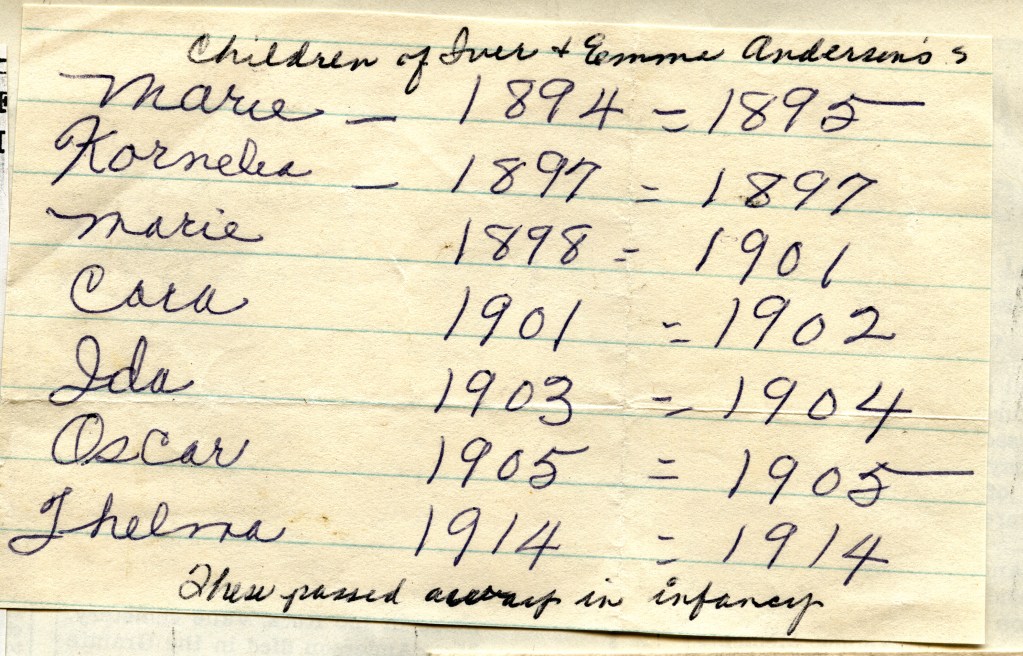 Children of Iver + Emma Anderson's s
Marie — 1894 = 1895
Kornelia — 1897 = 1897
Marie 1898 = 1901
Cora 1901 = 1902
Ida 1903 = 1904
Oscar 1905 = 1905
Thelma 1914 = 1914
These passed away in infancy